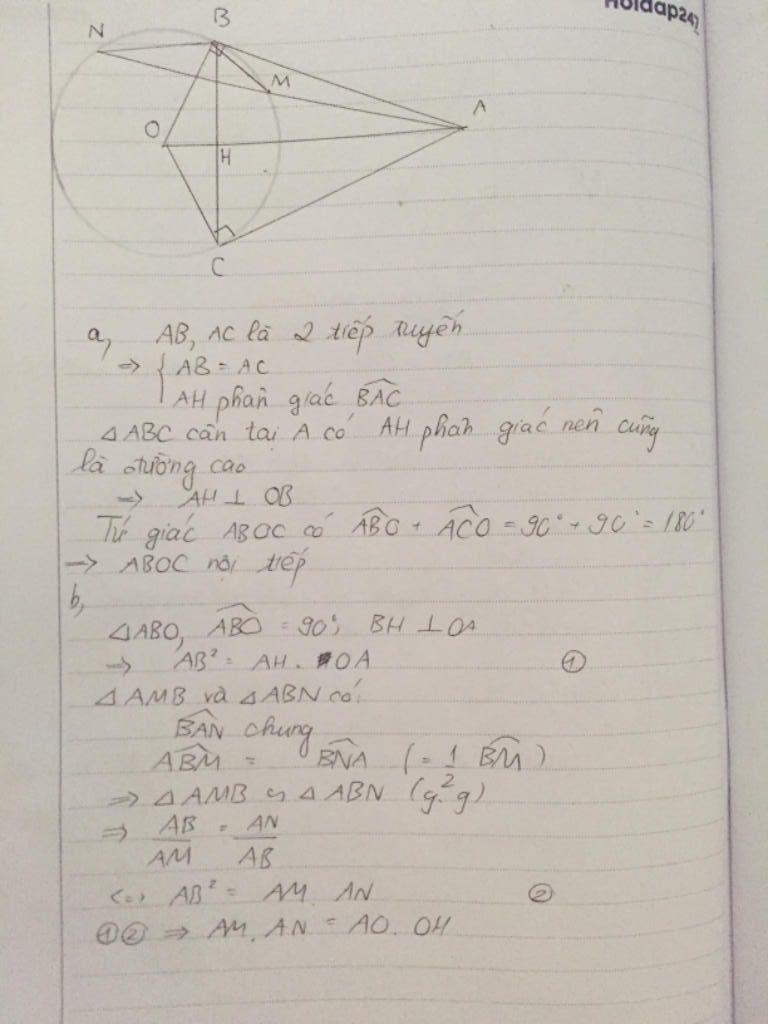 Hoidap247
N
B
M
A
O
H
C
a, AB, AC là 2 tiếp tuyến
=> { AB = AC
AH phân giác BAC
△ABC cân tại A có AH phân giác nên cũng
là đường cao
=> AH ⊥ OB
Tứ giác ABOC có ABO + ACO = 90° + 90° = 180°
=> ABOC nội tiếp
b,
△ABO, ABO = 90°, BH ⊥ OA
=> AB² = AH. OA ①
△AMB và △ABN có:
BAN chung
ABM = BNA (= 1/2 BM)
=> △AMB ∽ △ABN (g.g)
=> AB/AM = AN/AB
<=> AB² = AM. AN ②
①② => AM. AN = AO. OH